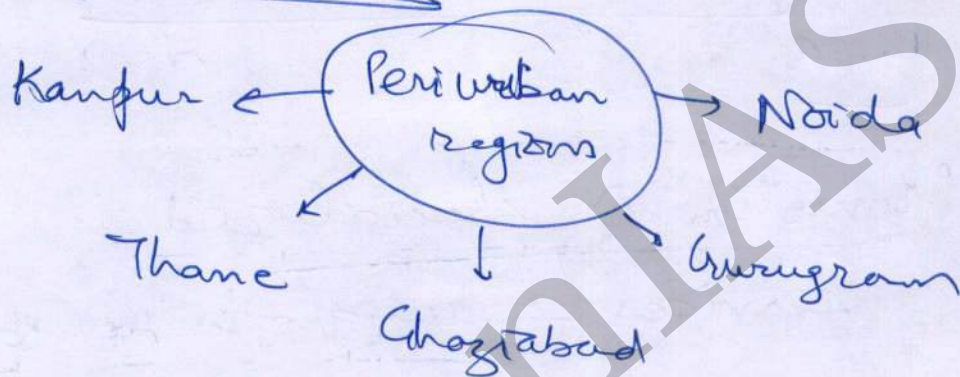 Kanpur
Peri urban
regions
Noida
Thane
Ghaziabad
Gurugram
nIAS